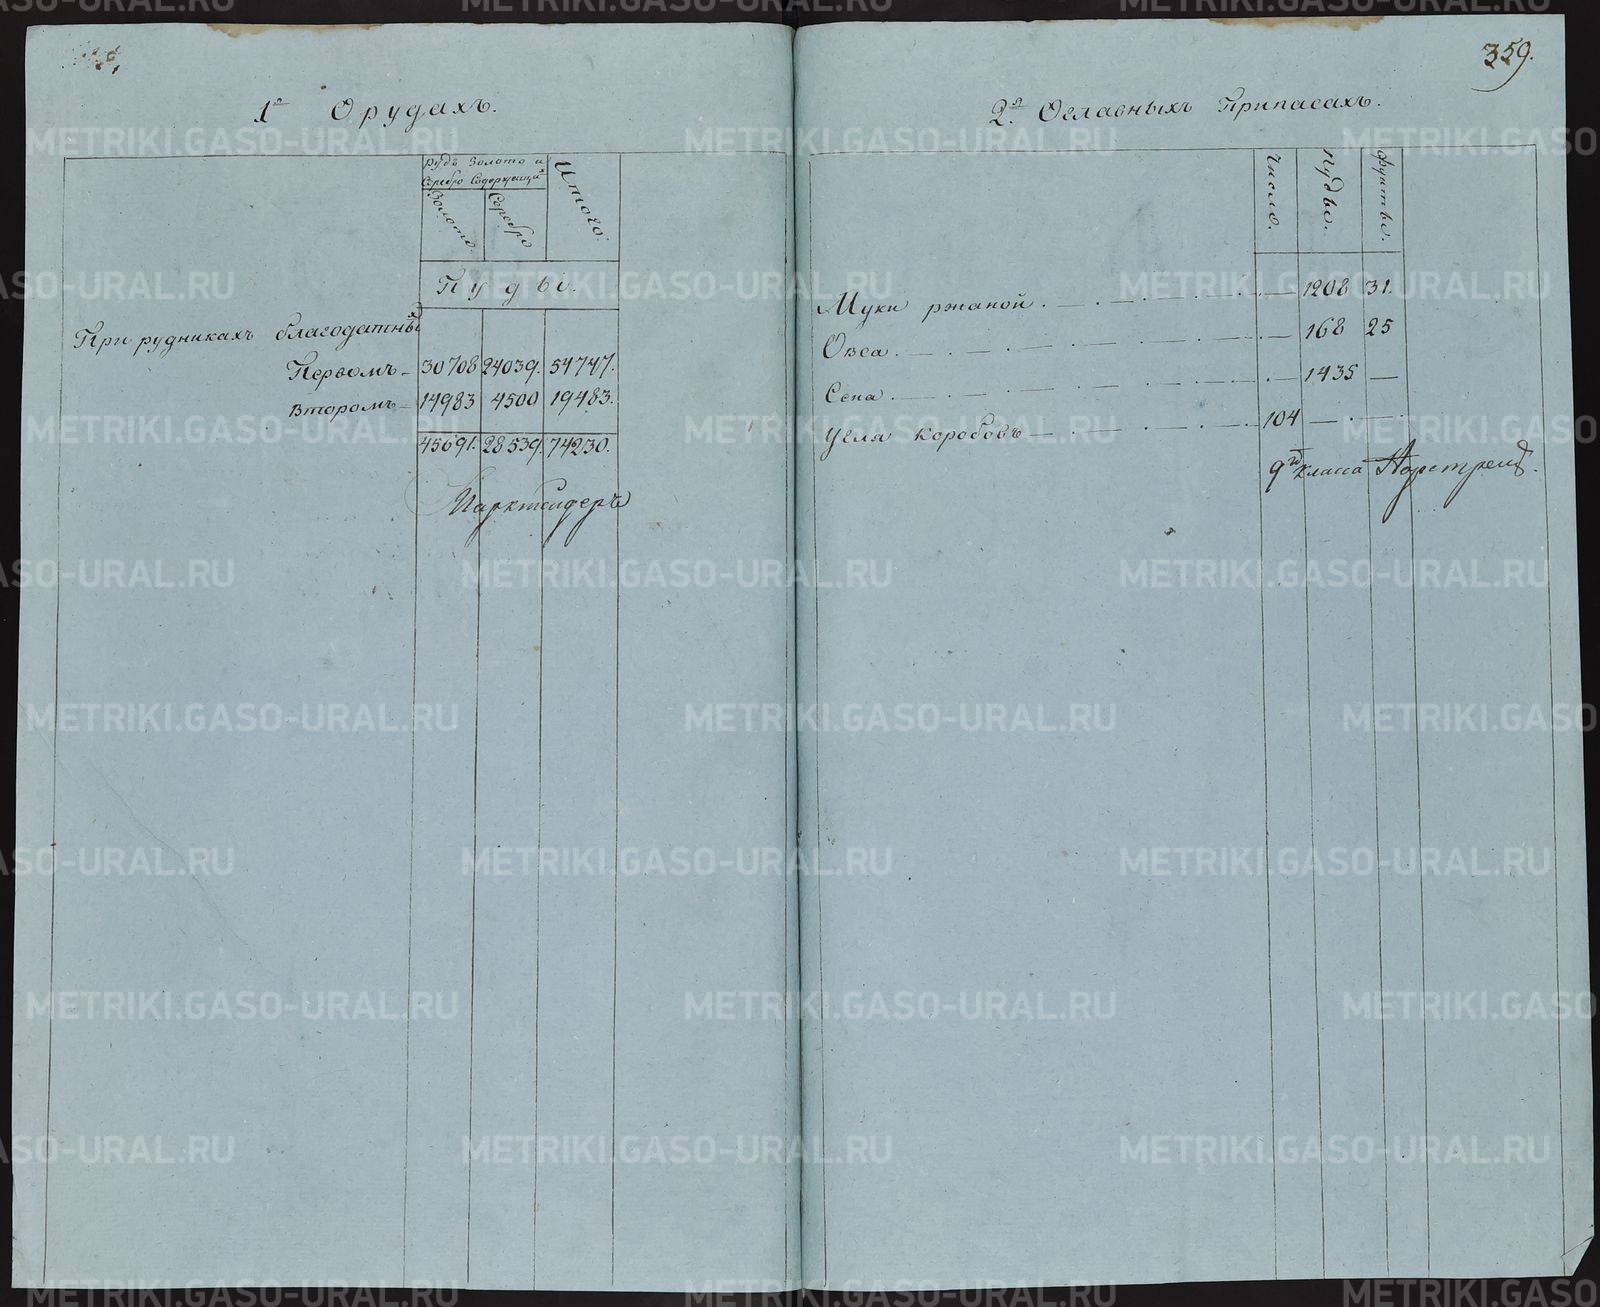 359.
1е О рудахъ.
Рудъ Золото и
Серебро Содержащи
Золото.
Серебро
Итого:
Пуды.
При рудникахъ благодатны
Первомъ 30708 24039. 54747.
Второмъ 14983 4500 19483.
45691. 28539. 74230.
Маркшейдеръ
2е О главныхъ Припасахъ.
Число.
Пуды.
Фунты.
Муки ржаной . 1208 31.
Овса . 168 25
Сена . 1435 —
Угля коробовъ — 104 —
9го класса